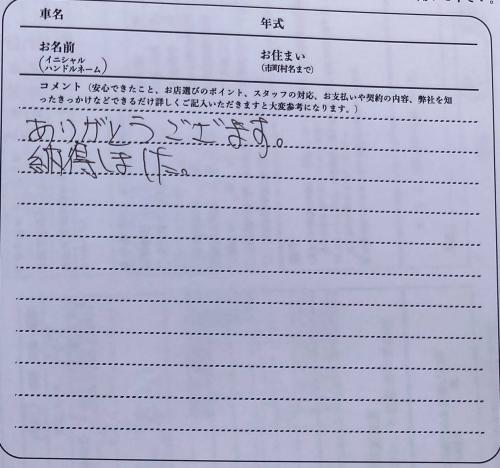 車名 年式
お名前 (イニシャル ハンドルネーム) お住まい (市町村名まで)
コメント（安心できたこと、お店選びのポイント、スタッフの対応、お支払いや契約の内容、弊社を知
ったきっかけなどできるだけ詳しくご記入いただきますと大変参考になります。）
ありがとうございます。
納得しました。